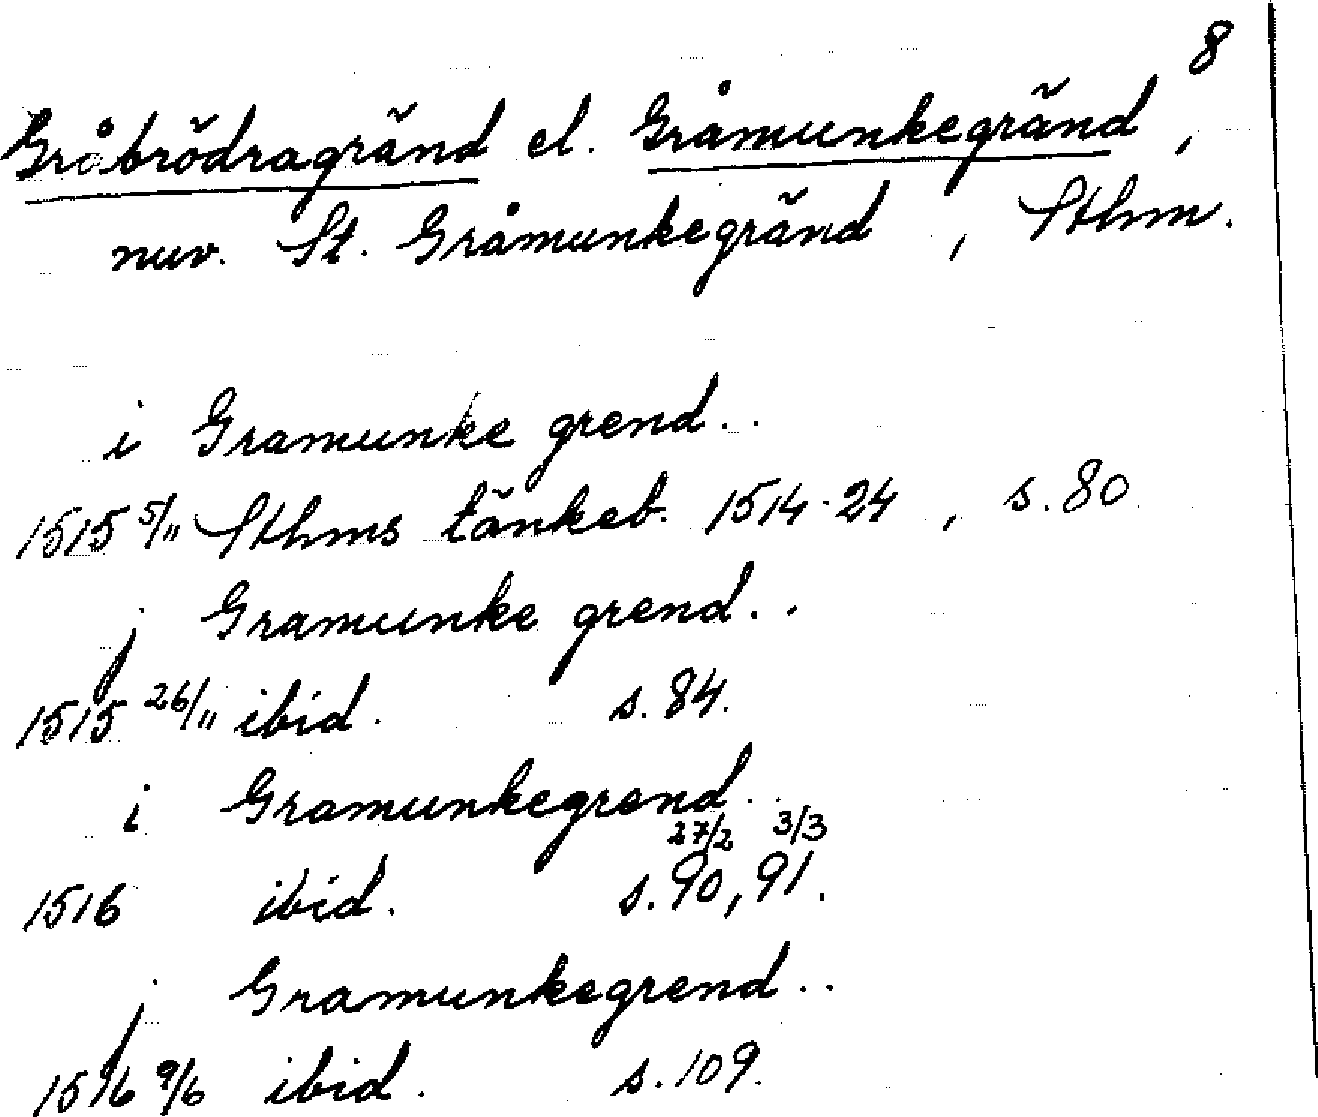 8
Gråbrödragränd el. Gråmunkegränd,
nuv. St. Gråmunkegränd, Sthm.
i Gramunke grend..
1515 5/11 Sthms tänkeb. 1514-24, s. 80
j Gramunke grend..
1515 26/11 ibid. s. 84.
i Gramunkegrend..
27/2 3/3
1516 ibid. s. 90, 91.
j Gramunkegrend..
1516 9/6 ibid. s. 109.